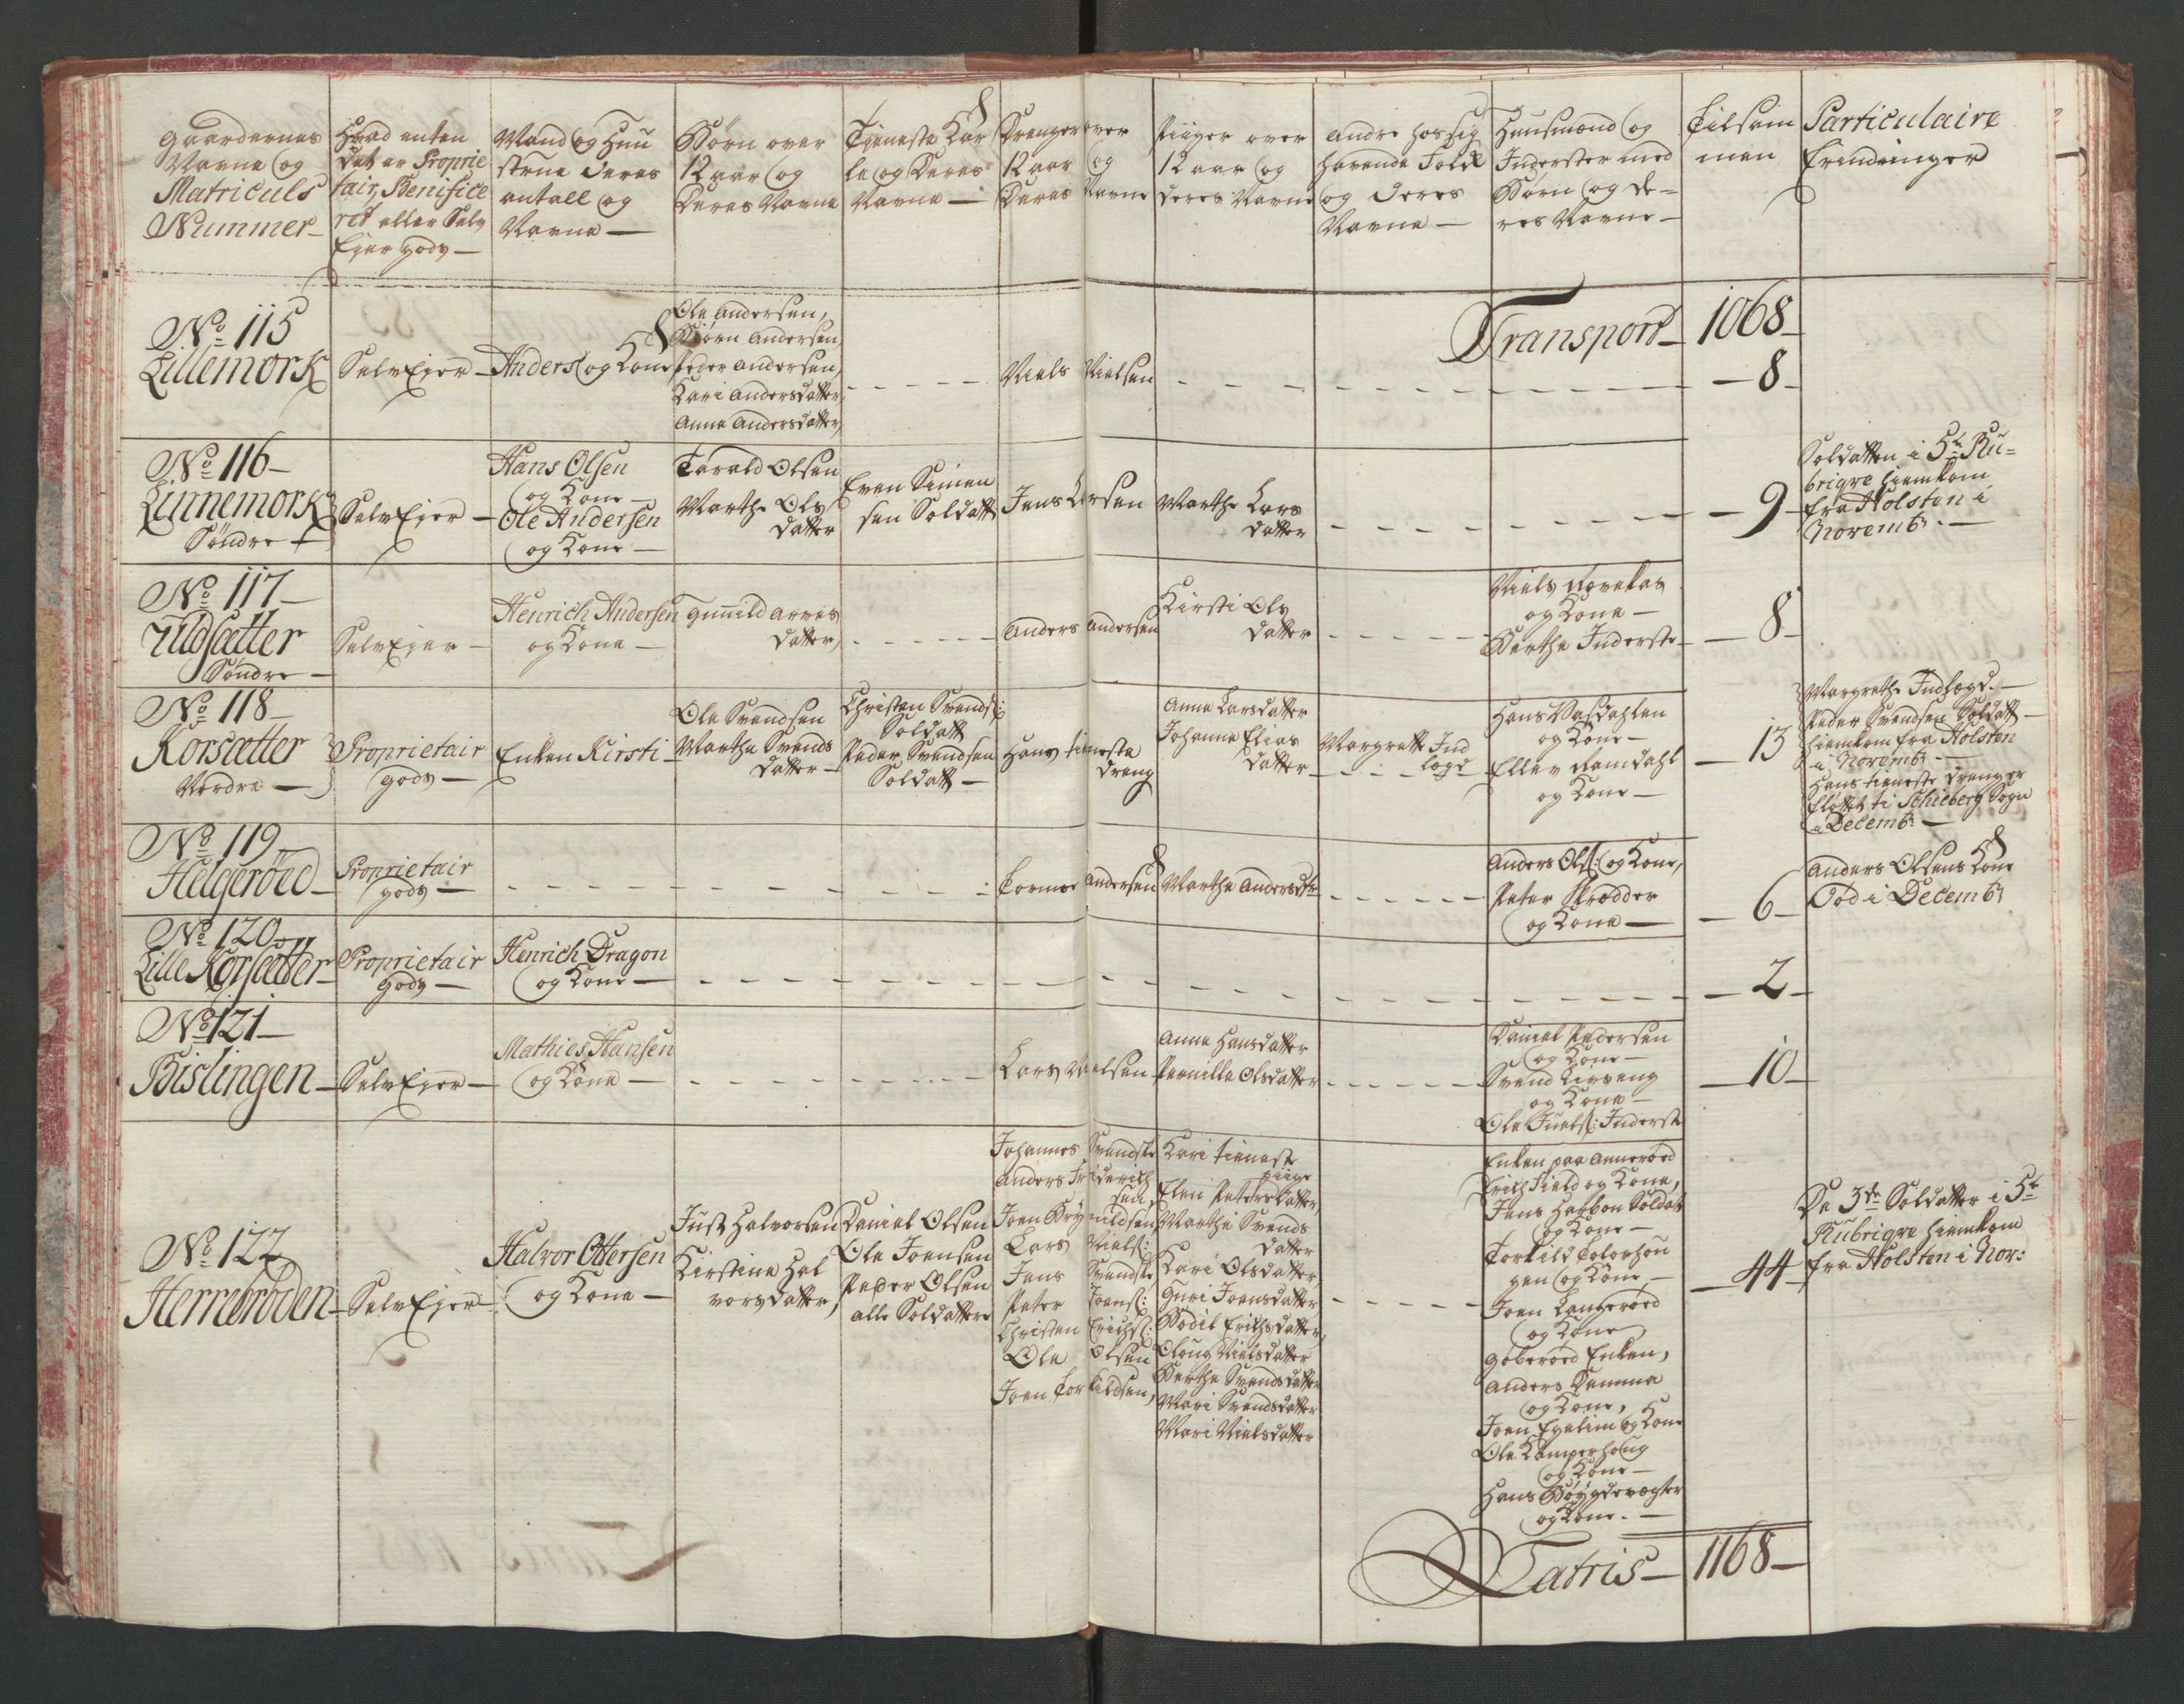 Gaardernes
Navne og
Matriculs
Nummer
Hvad enten
det er Proprie
tair, Benifice
ret eller Selv
Ejer gods
Mand og Huu
strue deres
antall og
Navne
Børn over
12 aar og
Deres Navne
Tieneste Kar
le og Deres
Navne
Drenger over
12 aar og
Deres Navne
Piiger over
12 aar og
deres Navne
andre hos sig
havende Folk
og deres
Navne
Huusmænd og
Inderster med
Børn og de-
res Navne
Tilsam
men
Particulaire
Erindringer
Transport 1068
No 115
Lillemork
SelvEjer
Anders og Kone
Ole Andersen,
Biørn Andersen,
Peder Andersen,
Kari Andersdatter,
Anna Andersdatter,
Niels Nielsen
8
No 116
Linnemork
Søndre
SelvEjer
Hans Olsen
og Kone
Ole Andersen
og Kone
Tarald Olsen
Marthe Ols
datter
Even Simen
sen Soldatt
Jens Larsen
Marthe Lars
datter
9
Soldatten i 5te Ru-
brique hiemkom
fra Holsten i
Novembr.
No 117
Sætter
Søndre
SelvEjer
Henrich Andersen
og Kone
Gunnild Arnes
datter,
Anders Andersen
Kirsti Ols
datter
Niels
og Kone
Berthe Inderste
8
No 118
Korsætter
Nordre
Proprietair
gods
Enken Kirsti
Ole Svendsen
Marthe Svends
datter
Christen Svends:
Soldatt
Peder Svendsen
Soldatt
Hans tieneste
dreng
Anne Larsdatter
Johanna Elias
datter
Margrette Ind
lægd
Hans Vasdahlen
og Kone
Ellev Ramdahl
og Kone
13
Margrethe Indlægd.
Peder Svendsen Soldatt
hiemkom fra Holsten
i Novembr.
Hans tieneste dreng er
fløttet ti Schieberg Sogn
i Decembr.
No 119
Helgerøed
Proprietair
gods
Tormor Andersen
Marthe Andersdtr
Anders Ols: og Kone,
Peter Skrædder
og Kone
6
Anders Olsens Kone
Død i Decembr
No 120
Lille Korsætter
Proprietair
gods
Henrich Dragon
og Kone
2
No 121
Bislingen
SelvEjer
Mathies Hansen
og Kone
Lars Nielsen
Anna Hansdatter
Pernille Olsdatter
Daniel Pedersen
og Kone
Svend
og Kone
Ole Juels: Inderst
10
No 122
Herrebrøden
SelvEjer
Halvor Ottersen
og Kone
Just Halvorsen
Kirstine Hal
vorsdatter,
Daniel Olsen
Ole Joensen
Peder Olsen
alle Soldattere
Johannes Svendske
Anders Friderich
sen,
Joen Brynildsen
Lars Niels:
Jens Svendske
Peter Joens:
Christen Erichs:
Ole Olsen
Joen Torkildsen,
Kari tieneste
piige
Elen Petersdatter,
Marthe Svends
datter
Kari Olsdatter,
Guri Joensdatter
Bodil Erichsdatter,
Oloug Nielsdatter
Berthe Svendsdatter
Mari Svendsdatter
Mari Nielsdatter
Enken paa Annerød
Erich Field og Kone,
Jens Halbon Soldat
og Kone
Torkild
gen og Kone,
Joen Langerød
og Kone
Goberød Enken,
Anders Damma
og Kone,
Joen Egelien og Kone
Ole Kamperhoug
og Kone
Hans Bøygdevægter
og Kone.
44
De 3de Soldatter i 5te
Rubrique hiemkom
fra Holsten i Nov:
Latris 1168